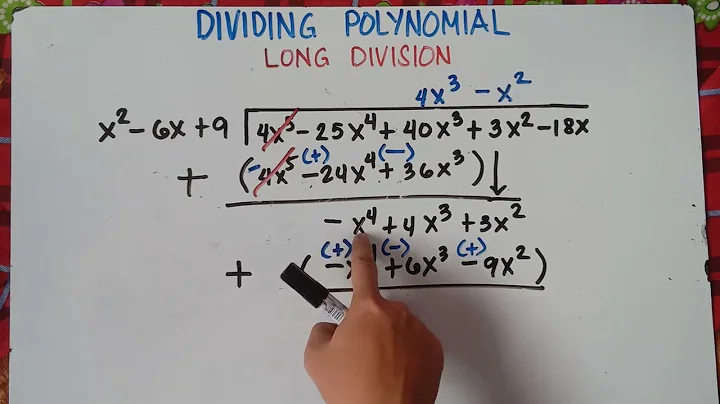 DIVIDING POLYNOMIAL
LONG DIVISION
4x³ - x²
x² - 6x + 9 4x⁵ - 25x⁴ + 40x³ + 3x² - 18x
+ (-4x⁵ (+) - 24x⁴ (-) + 36x³) ↓
- x⁴ + 4x³ + 3x²
+ ( (+) - x⁴ (-) + 6x³ (+) - 9x²)